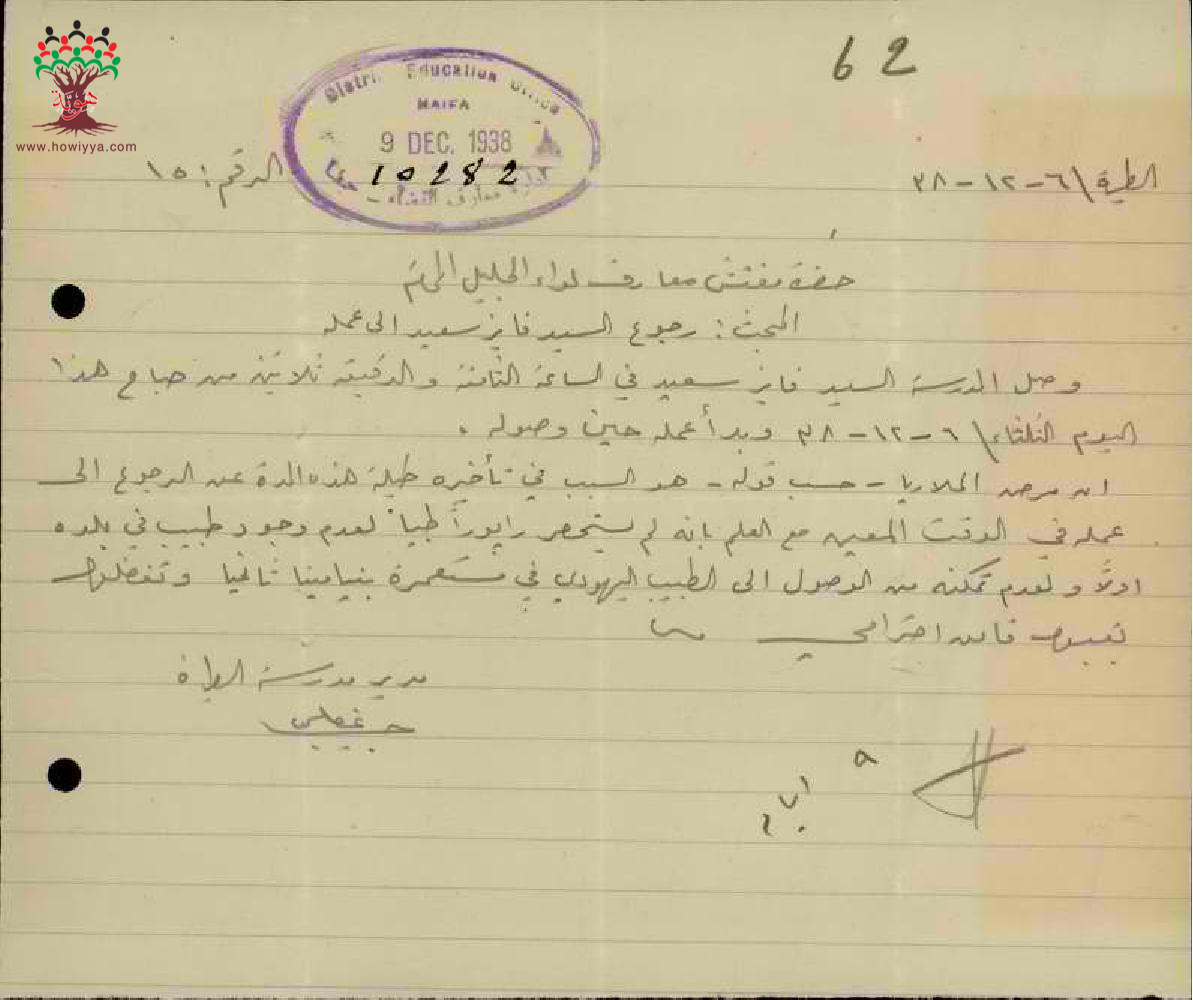 62
هوية
www.howiyya.com
District Education Office
HAIFA
9 DEC. 1938
10282
الطيرة \ ٦-١٢-٣٨
الرقم: ١٥
حضرة مفتش معارف لواء الجليل المحترم
المبحث: رجوع السيد فايز سعيد الى عمله
وصل المدرسة السيد فايز سعيد في الساعة الثامنة والدقيقة ثلاثين من صباح هذا
اليوم الثلثاء \ ٦-١٢-٣٨ وبدأ عمله حين وصوله.
ان مرض الملاريا - حسب قوله - هو السبب في تأخيره طيلة هذه المدة عن الرجوع الى
عمله في الوقت المعين مع العلم بانه لم يستحضر رابوراً طبياً لعدم وجود طبيب في بلده
اولاً ولعدم تمكنه من الوصول الى الطبيب اليهودي في مستعمرة بنيامينا ثانيا وتفضلوا
بقبول فائق احترامي
مدير مدرسة